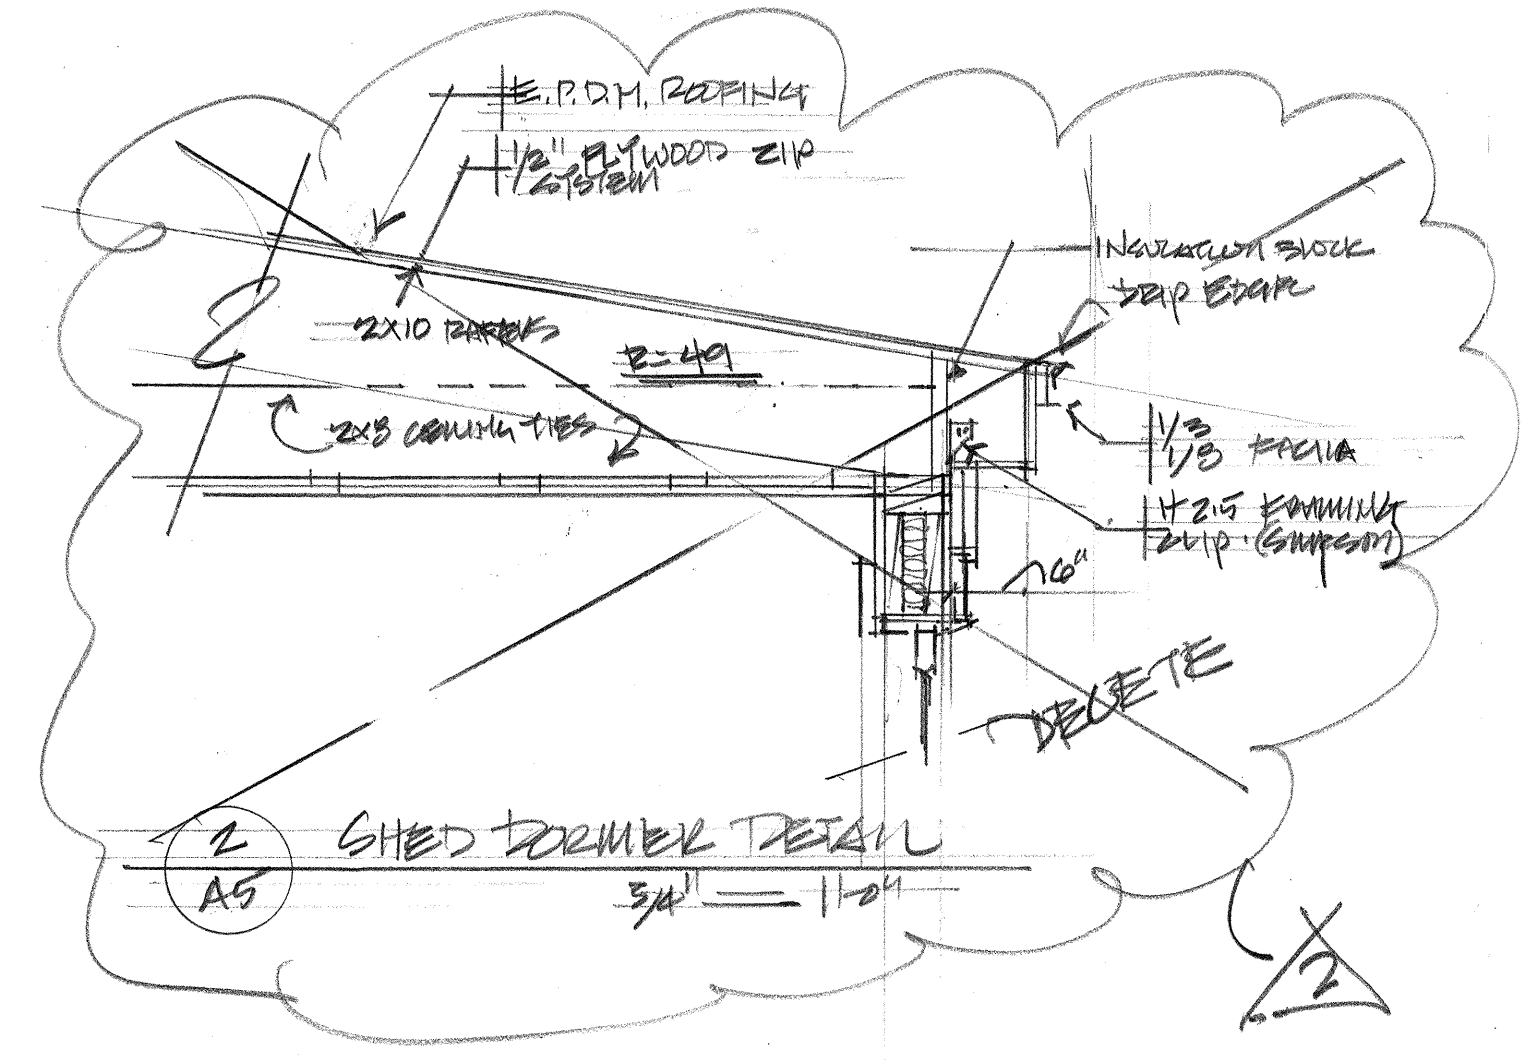 E.P.D.M. ROOFING
1/2" PLYWOOD ZIP
SYSTEM
INSULATION BLOCK
DRIP EDGE
2X10 RAFTERS
R=49
2X8 CEILING TIES
1/3
1/8 FACIIA
H 2.5 FRAMING
CLIP. (SIMPSON)
6"
DELETE
2
A5
SHED DORMER DETAIL
3/4" = 1'-0"
2
2